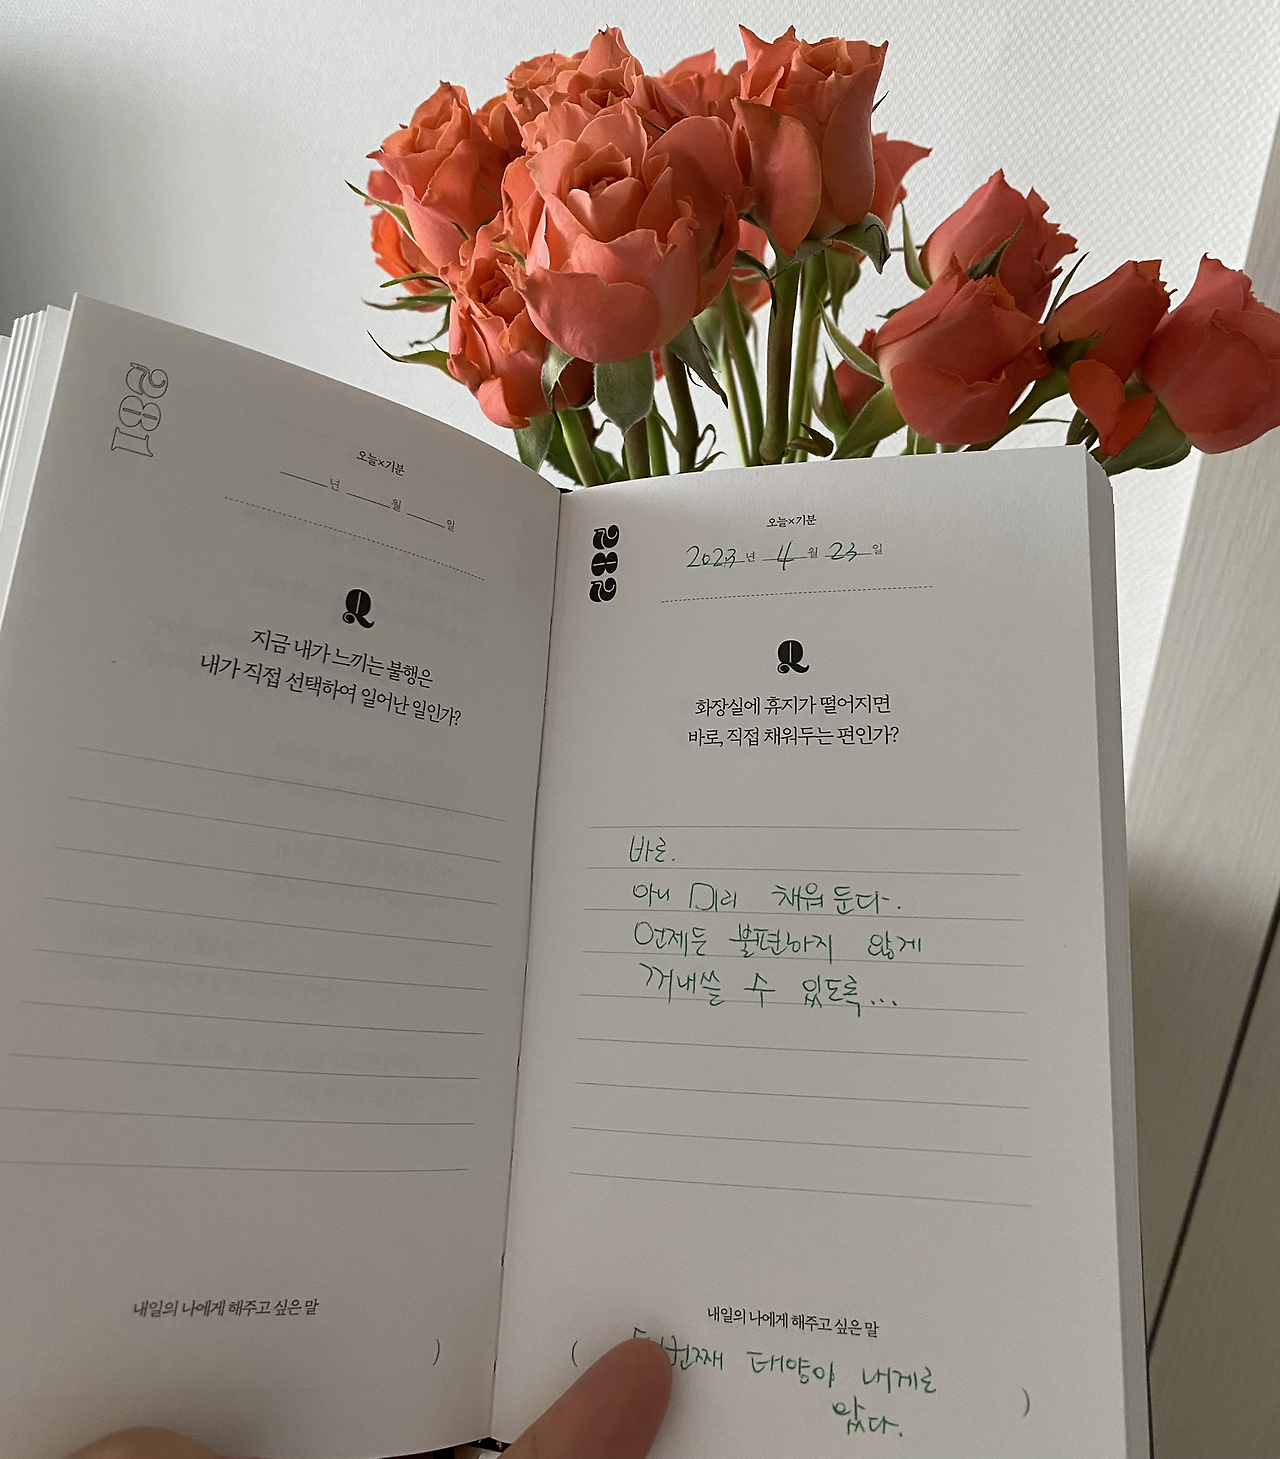 281
오늘×기분
년 월 일
Q
지금 내가 느끼는 불행은
내가 직접 선택하여 일어난 일인가?
내일의 나에게 해주고 싶은 말
)
282
오늘×기분
2023년 4월 23일
Q
화장실에 휴지가 떨어지면
바로, 직접 채워두는 편인가?
바로.
아니 미리 채워둔다.
언제든 불편하지 않게
꺼내쓸 수 있도록...
내일의 나에게 해주고 싶은 말
( 번째 태양이 내게로
왔다. )